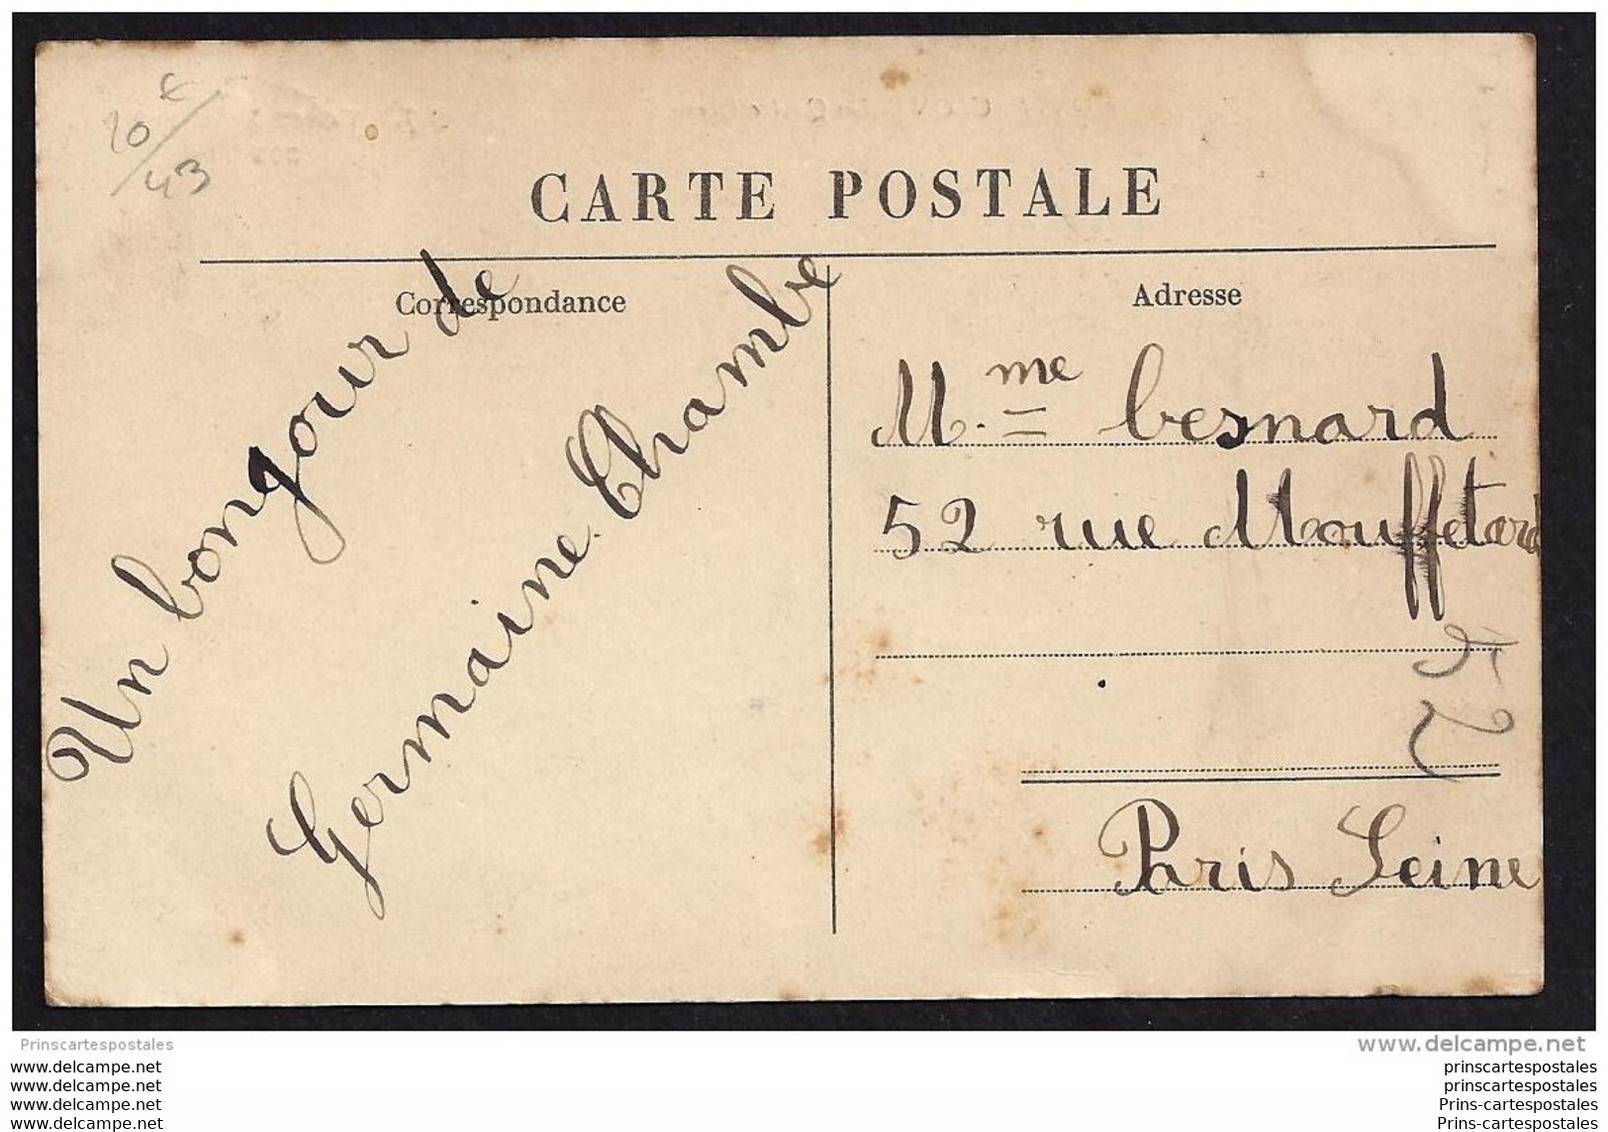 10 €/43
CARTE POSTALE
Correspondance
Un bonjour de
Germaine Chambe
Adresse
M.me besnard
52 rue Mouffetard
52
Paris Seine
Prinscartespostales
www.delcampe.net
www.delcampe.net
prinscartespostales
www.delcampe.net
prinscartespostales
www.delcampe.net
Prins-cartespostales
www.delcampe.net
Prins-cartespostales